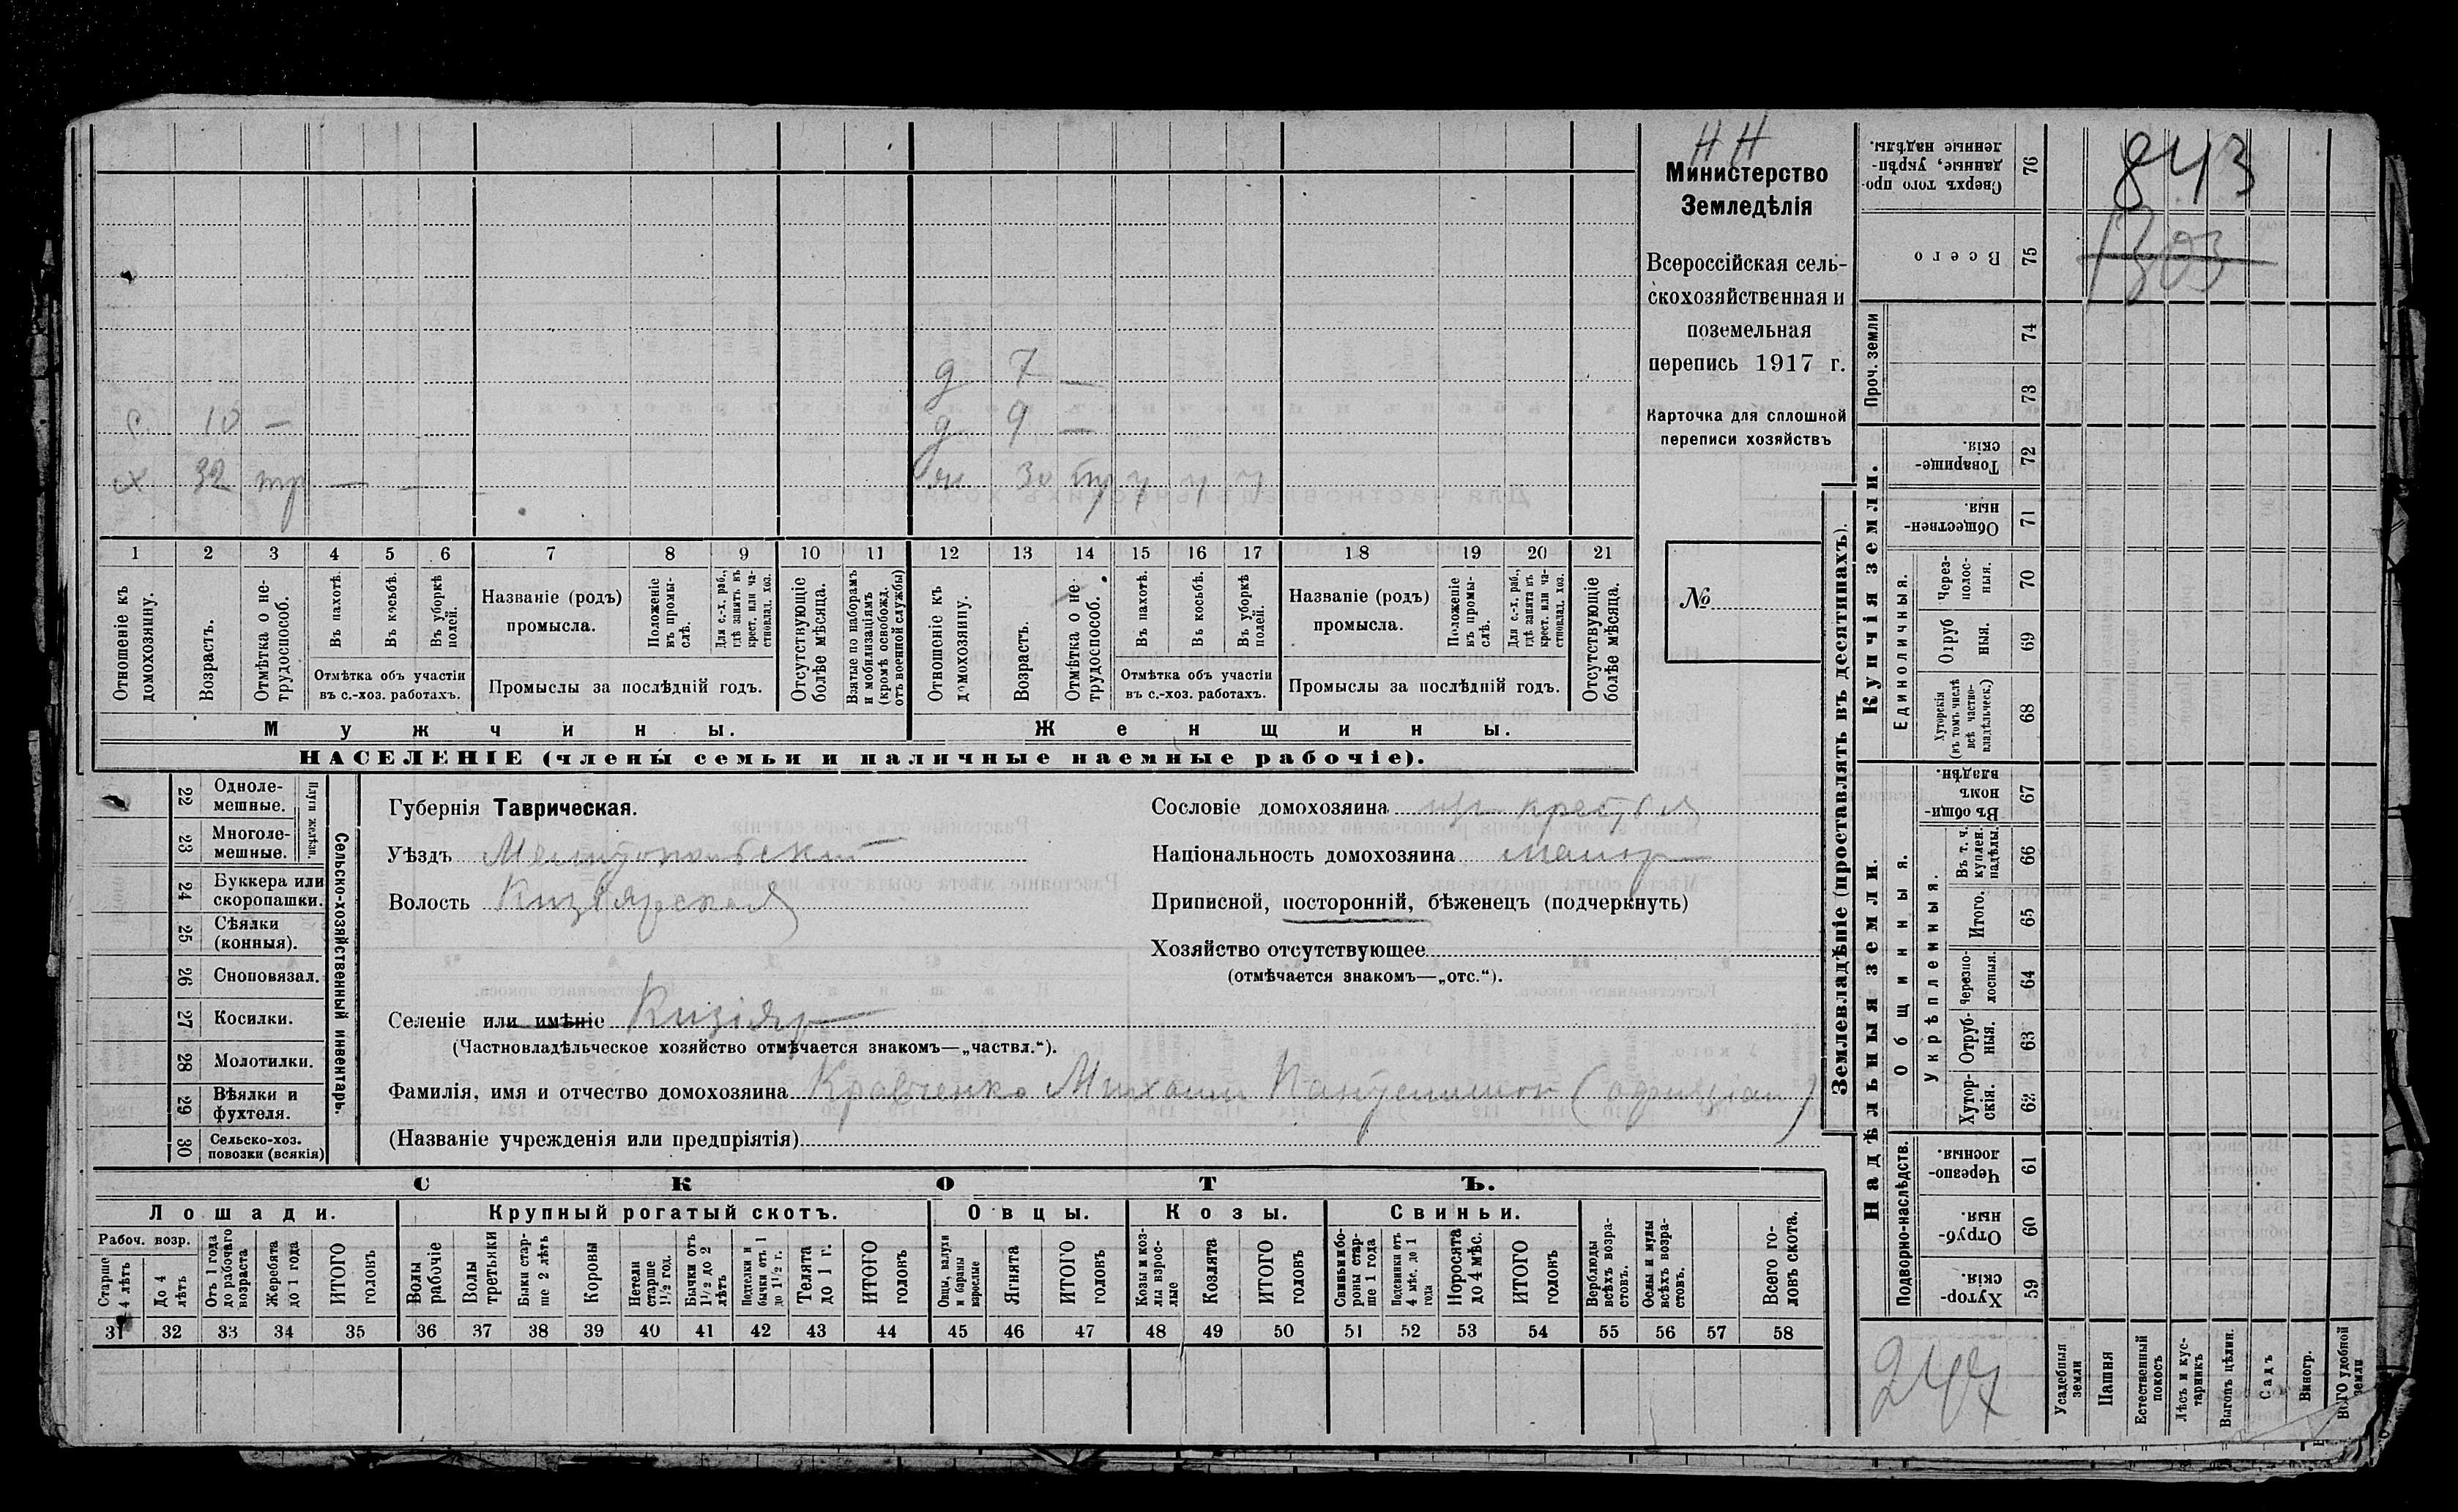 Н Н
Министерство
Земледѣлія
Всероссійская сель-
скохозяйственная и
поземельная
перепись 1917 г.
Карточка для сплошной
переписи хозяйствъ
№
д 7 —
с 10 —
д 9 —
х 32 тр — — —
ж 30 тр ч ч ч
1 2 3 4 5 6 7 8 9 10 11 12 13 14 15 16 17 18 19 20 21
Отношеніе къ домохозяину.
Возрастъ.
Отмѣтка о не-трудоспособ.
Въ пахотѣ.
Въ косьбѣ.
Въ уборкѣ полей.
Отмѣтка объ участіи въ с.-хоз. работахъ.
Названіе (родъ) промысла.
Положеніе въ промы-слѣ.
Для с.-х. раб., гдѣ занятъ въ крест. или ча-стновлад. хоз.
Промыслы за послѣдній годъ.
Отсутствующіе болѣе мѣсяца.
Взятые по наборамъ и мобилизаціямъ (кромѣ освобожд. отъ военной службы)
Отношеніе къ домохозяину.
Возрастъ.
Отмѣтка о не-трудоспособ.
Въ пахотѣ.
Въ косьбѣ.
Въ уборкѣ полей.
Отмѣтка объ участіи въ с.-хоз. работахъ.
Названіе (родъ) промысла.
Положеніе въ промы-слѣ.
Для с.-х. раб., гдѣ занята въ крест. или ча-стновлад. хоз.
Промыслы за послѣдній годъ.
Отсутствующіе болѣе мѣсяца.
Мужчины.
Женщины.
НАСЕЛЕНІЕ (члены семьи и наличные наемные рабочіе).
22 Одноле-мешные.
23 Многоле-мешные.
Плуги желѣзн.
24 Буккера или скоропашки.
25 Сѣялки (конныя).
26 Сноповязал.
27 Косилки.
28 Молотилки.
29 Вѣялки и фухтеля.
30 Сельско-хоз. повозки (всякія)
Сельско-хозяйственный инвентарь.
Губернія Таврическая.
Уѣздъ Мелитопольскій
Волость Кизіярская
Селеніе или имѣніе Кизіяр
(Частновладѣльческое хозяйство отмѣчается знакомъ—„частвл.“).
Фамилія, имя и отчество домохозяина Кравченко Михаил
(Названіе учрежденія или предпріятія)
Сословіе домохозяина крестья
Національность домохозяина малор
Приписной, посторонній, бѣженецъ (подчеркнуть)
Хозяйство отсутствующее
(отмѣчается знакомъ—„отс.“).
СКОТЪ.
Лошади.
Рабоч. возр.
Старше 4 лѣтъ
До 4 лѣтъ
Отъ 1 года до рабочаго возраста
Жеребята до 1 года
ИТОГО головъ
Крупный рогатый скотъ.
Волы рабочіе
Волы третьяки
Быки стар-ше 2 лѣтъ
Коровы
Нетели старше 1½ год.
Бычки отъ 1½ до 2 лѣтъ
Подтелки и бычки отъ 1 до 1½ г.
Телята до 1 г.
ИТОГО головъ
Овцы.
Овцы, валухи и бараны взрослые
Ягнята
ИТОГО головъ
Козы.
Козы и коз-лы взрос-лые
Козлята
ИТОГО головъ
Свиньи.
Свиньи и бо-ровы стар-ше 1 года
Подсвинки отъ 4 мѣс. до 1 года
Поросята до 4 мѣс.
ИТОГО головъ
Верблюды всѣхъ возра-стовъ.
Ослы и мулы всѣхъ возра-стовъ.
Всего го-ловъ скота.
31 32 33 34 35 36 37 38 39 40 41 42 43 44 45 46 47 48 49 50 51 52 53 54 55 56 57 58
Землевладѣніе (проставлять въ десятинахъ).
76 Сверхъ того про-данные, укрѣп-ленные надѣлы.
843
75 Всего
1303
Проч. земли
74
73
Купчія земли.
72 Товарище-скія.
71 Обществен-ныя.
Единоличныя.
70 Через-полос-ныя.
69 Отруб ныя.
68 Хуторскія (въ томъ числѣ всѣ частно-владѣльческ.)
Надѣльныя земли.
Общинныя.
67 Въ общи-номъ владѣн.
Укрѣпленныя.
66 Въ т. ч. куплен. надѣлы.
65 Итого.
64 Черезпо-лосныя.
63 Отруб-ныя.
62 Хутор-скія.
Подворно-наслѣдств.
61 Черезпо-лосныя.
60 Отруб-ныя.
59 Хутор-скія.
247
Усадебныя земли
Пашня
Естественный покосъ
Лѣсъ и кус-тарникъ
Выгонъ цѣлин.
Садъ
Виногр.
ВСЕГО удобной земли